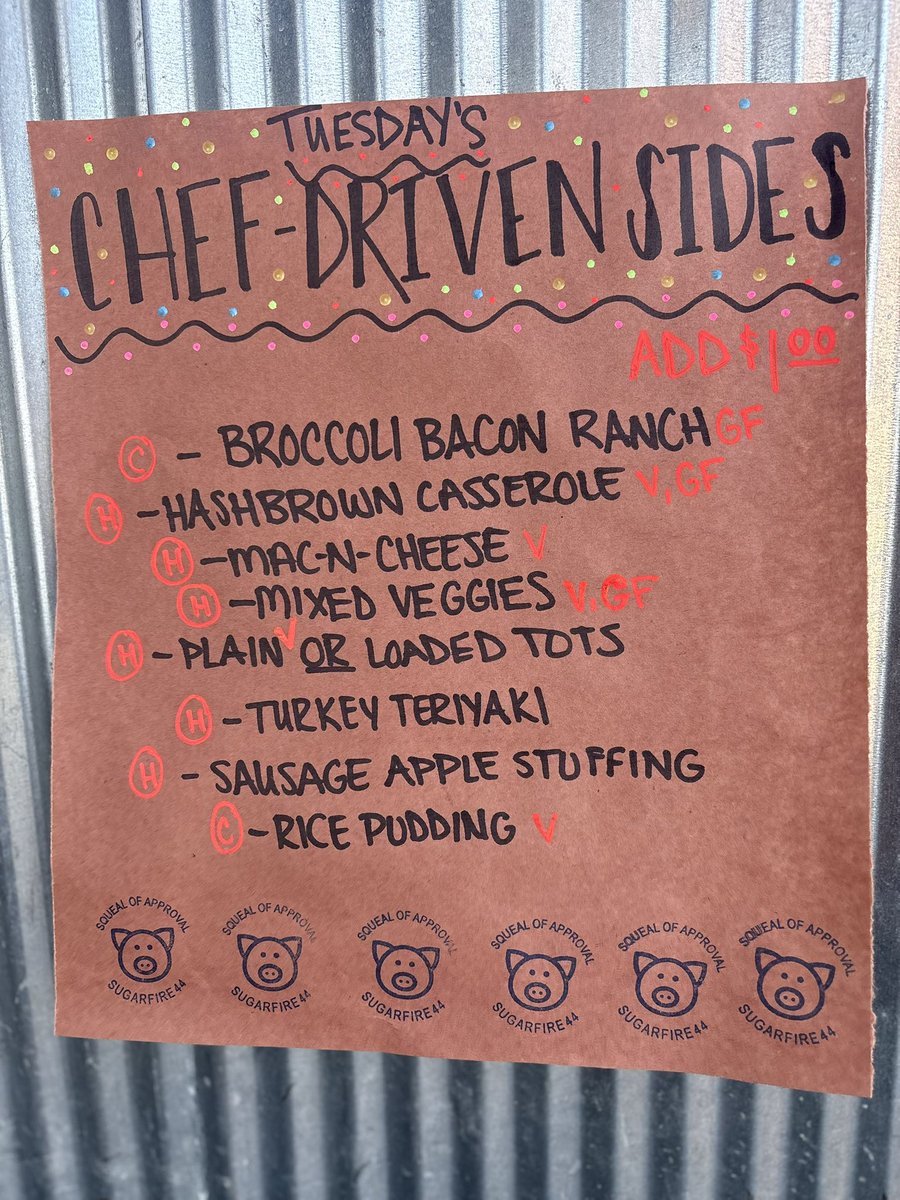 TUESDAY'S
CHEF-DRIVEN SIDES
ADD $1.00
C - BROCCOLI BACON RANCH GF
H - HASHBROWN CASSEROLE V, GF
H - MAC-N-CHEESE V
H - MIXED VEGGIES V, GF
H - PLAIN V OR LOADED TOTS
H - TURKEY TERIYAKI
H - SAUSAGE APPLE STUFFING
C - RICE PUDDING V
SQUEAL OF APPROVAL SQUEAL OF APPROVAL SQUEAL OF APPROVAL SQUEAL OF APPROVAL SQUEAL OF APPROVAL SQUEAL OF APPROVAL
SUGARFIRE44 SUGARFIRE44 SUGARFIRE44 SUGARFIRE44 SUGARFIRE44 SUGARFIRE44